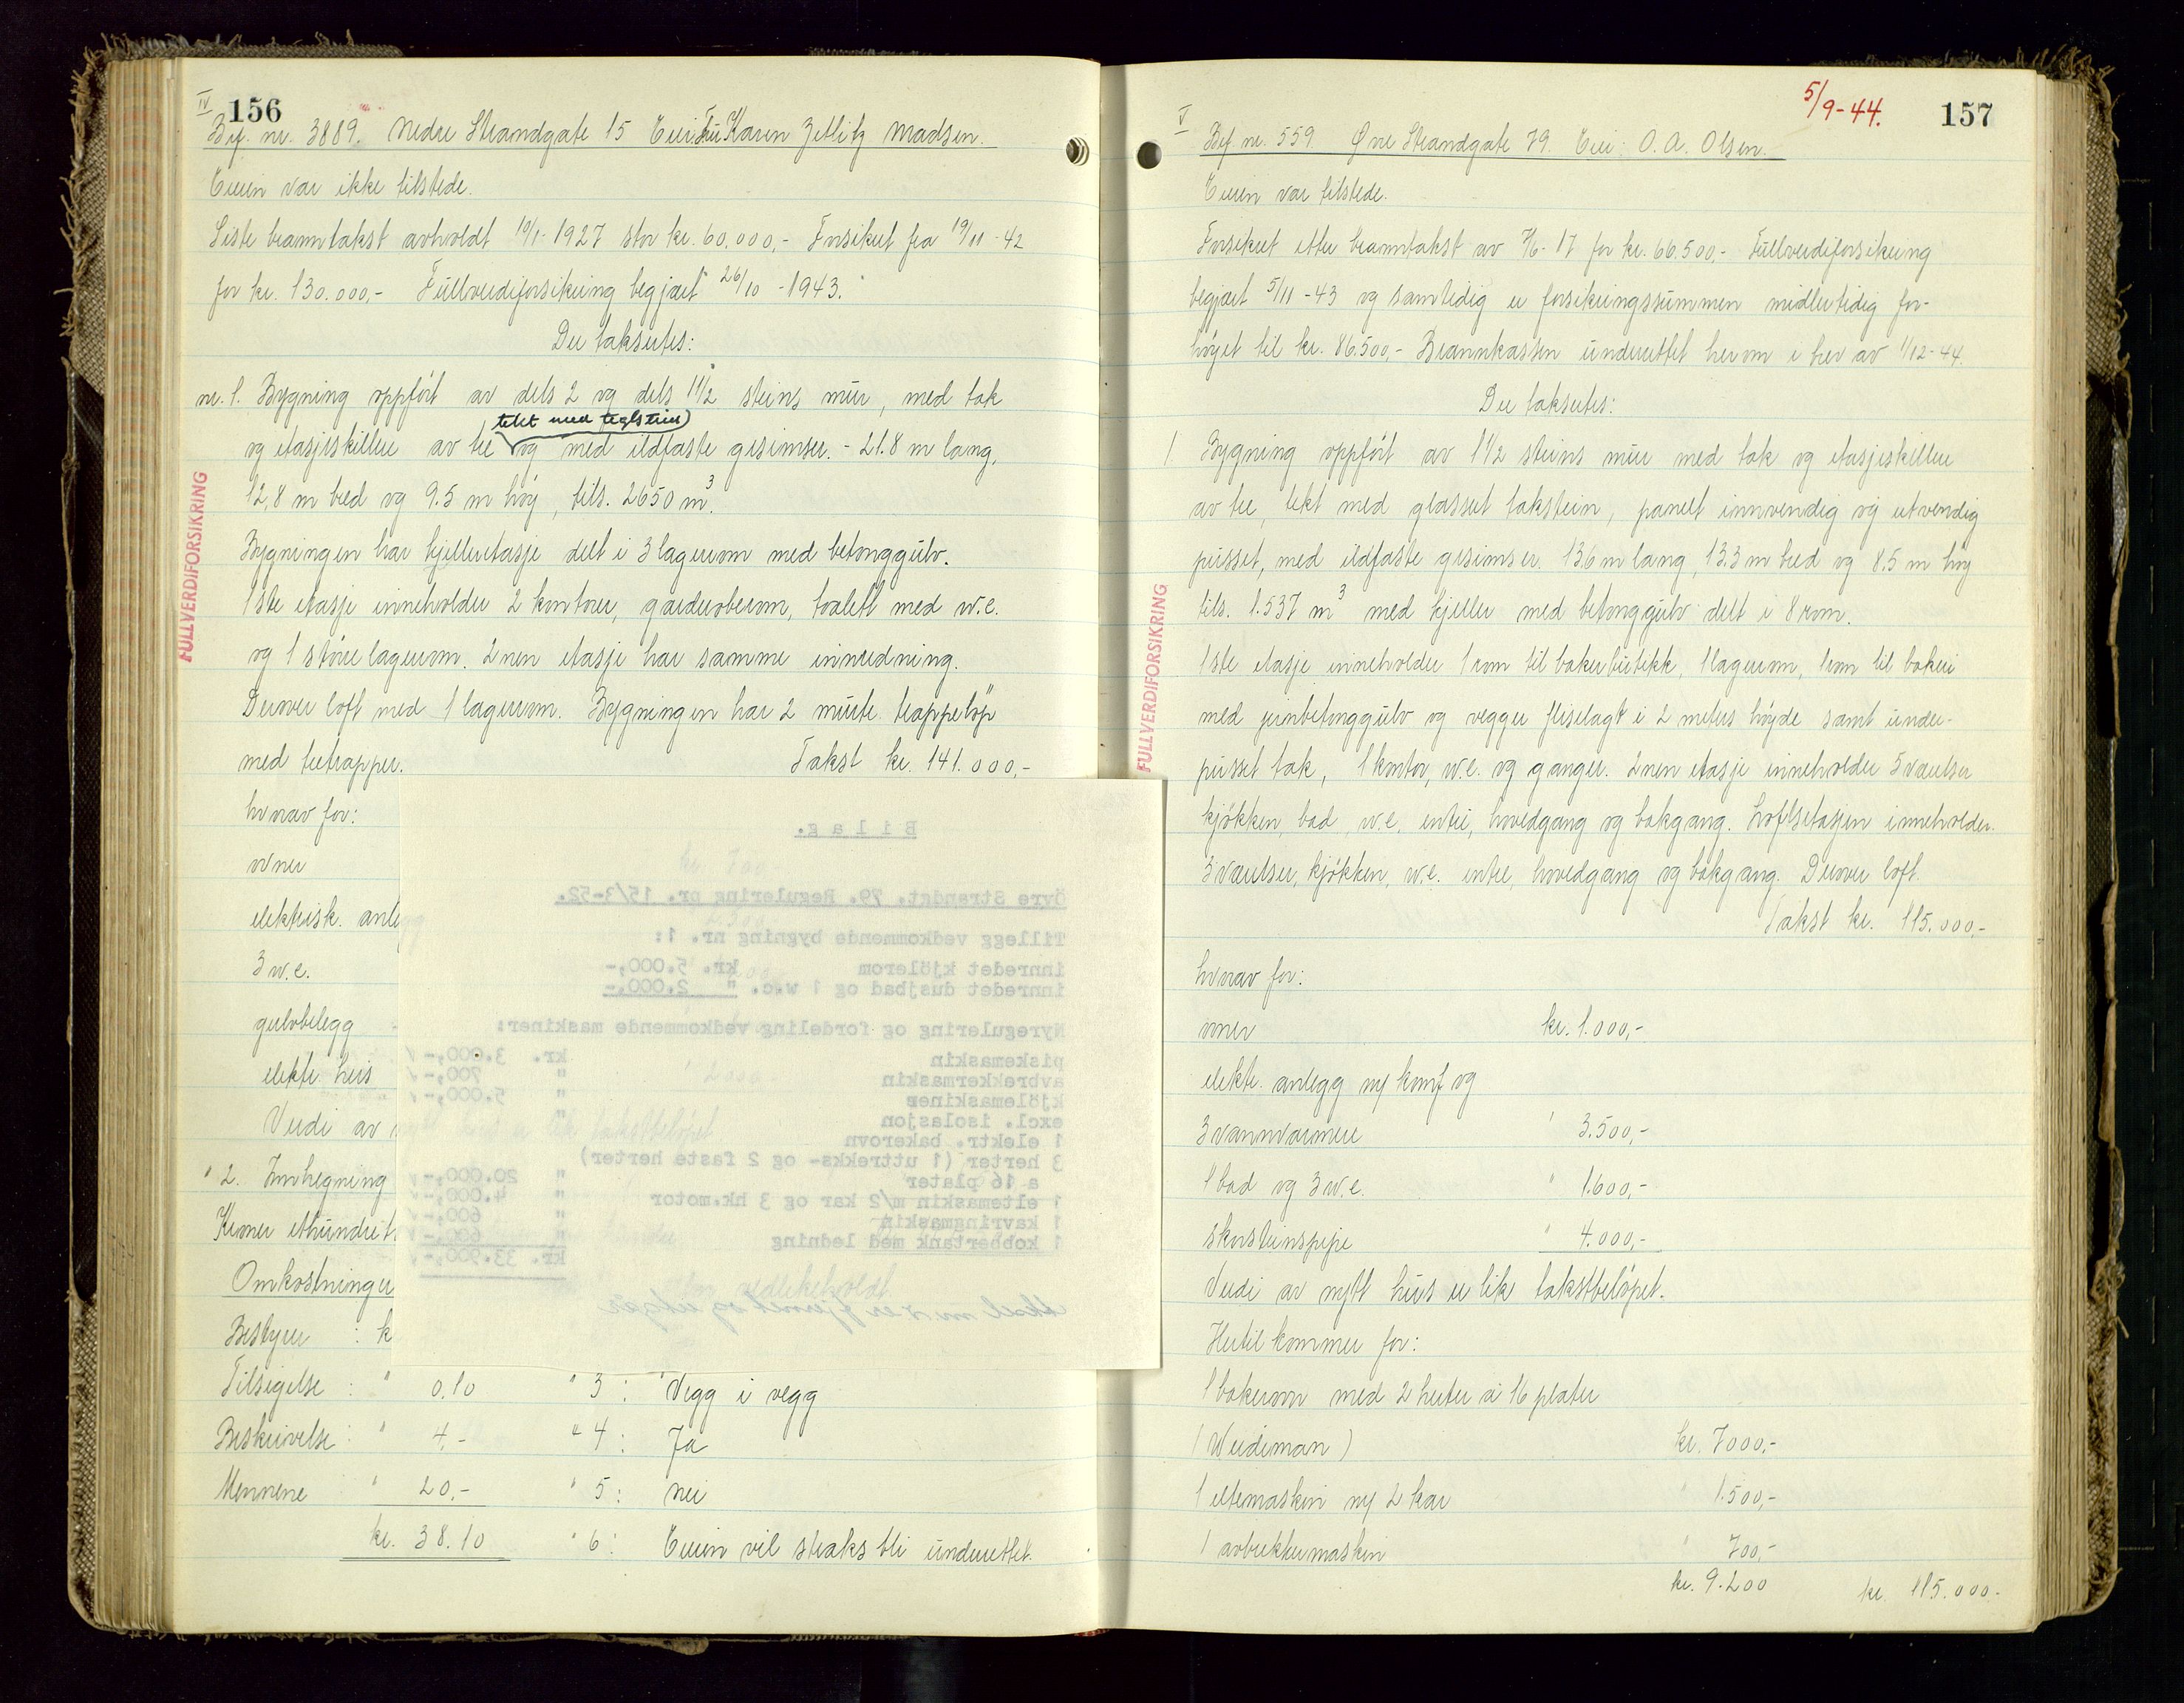 IV 156
Brf. nr. 3889. Nedre Strandgate 15 Eier: Fru Karen Zetlitz Madsen.
Eieren var ikke tilstede.
Siste branntakst avholdt 19/1-1927 stor kr. 60.000,- Forsikret fra 19/11-42
for kr. 130.000,- Fullverdiforsikring begjært 26/10-1943.
Der takseres:
nr. 1. Bygning oppført av dels 2 og dels 1 1/2 steins mur, med tak
tekt med teglstein
og etasjeskiller av tre og med ildfaste gesimser. - 21.8 m lang,
12,8 m bred og 9.5 m høy, tils. 2650 m3.
Bygningen har kjelleretasje delt i 3 lagerrom med betonggulv.
1ste etasje inneholder 2 kontorer, garderoberom, toalett med w.c.
og 1 större lagerrom. 2nen etasje har samme innredning.
Derover loft med 1 lagerrom. Bygningen har 2 murte trappeløp
med tretrapper. Takst kr. 141.000,-
hvorav for:
ovner
elektrisk. anlegg
3 w.c.
gulvbelegg
elektr. heis
Verdi av
" 2. Innhegning
Kroner etthundredt
Omkostninger
Bestyrer : k
Tilsigelse : " 0.10 " 3 : Vegg i vegg
Beskrivelse : " 4,- " 4 : Ja
Mennene " 20,- " 5 : nei
kr. 38.10 " 6 : Eieren vil straks bli underrettet.
FULLVERDIFORSIKRING
Bilag.
Övre Strandgt. 79. Regulering pr. 15/3-52.
Tillegg vedkommende bygning nr. 1:
innredet kjölerom kr. 5.000,-
innredet dusjbad og 1 w.c. " 2.000.-
Nyregulering og fordeling vedkommende maskiner:
piskemaskin kr. 3.000,-
avbrekkermaskin " 700,-
kjölemaskiner " 5.000,-
excl. isolasjon
1 elektr. bakerovn
3 herter (1 uttrekks- og 2 faste herter)
a 16 plater " 20.000,-
1 eltemaskin m/2 kar og 3 hk.motor " 4.000,-
1 kavringmaskin " 600,-
1 kobbertank med ledning " 600,-
kr. 33.900,-
V 5/9-44. 157
Brf. nr. 559. Øvre Strandgate 79. Eier: O. A. Olsen.
Eieren var tilstede.
Forsikret etter branntakst av 7/6-17 for kr. 66.500,- Fullverdiforsikring
begjært 5/11-43 og samtidig er forsikringssummen midlertidig for-
høyet til kr. 86.500,- Brannkassen underrettet herom i brev av 1/12-44.
Der takseres:
1. Bygning oppført av 1 1/2 steins mur med tak og etasjeskiller
av tre, tekt med glassert takstein, panelt innvendig og utvendig
pusset, med ildfaste gesimser. 13.6 m lang, 13.3 m bred og 8.5 m høy
tils. 1.537 m3 med kjeller med betonggulv delt i 8 rom.
1ste etasje inneholder 1 rom til bakerbutikk, 1 lagerrom, 1 rom til bakeri
med jernbetonggulv og vegger fliselagt i 2 meters høyde samt under-
pusset tak, 1 kontor, w.c. og ganger. 2nen etasje inneholder 5 værelser
kjøkken, bad, w.c. entre, hovedgang og bakgang. Loftsetasjen inneholder
3 værelser, kjøkken, w.c. entre, hovedgang og bakgang. Derover loft.
Takst kr. 115.000,-
hvorav for:
ovner kr. 1.000,-
elektr. anlegg m/ komf og
3 vannvarmere " 3.500,-
1 bad og 3 w.c. " 1.600,-
skorsteinspipe " 4.000,-
Verdi av nytt hus er lik takstbeløpet.
Hertil kommer for:
1 bakerovn med 2 herter á 16 plater
(Weidiman) kr. 7000,-
1 eltemaskin m/ 2 kar " 1.500,-
1 avbrekkermaskin " 700,-
kr. 9.200 kr. 115.000.-
FULLVERDIFORSIKRING